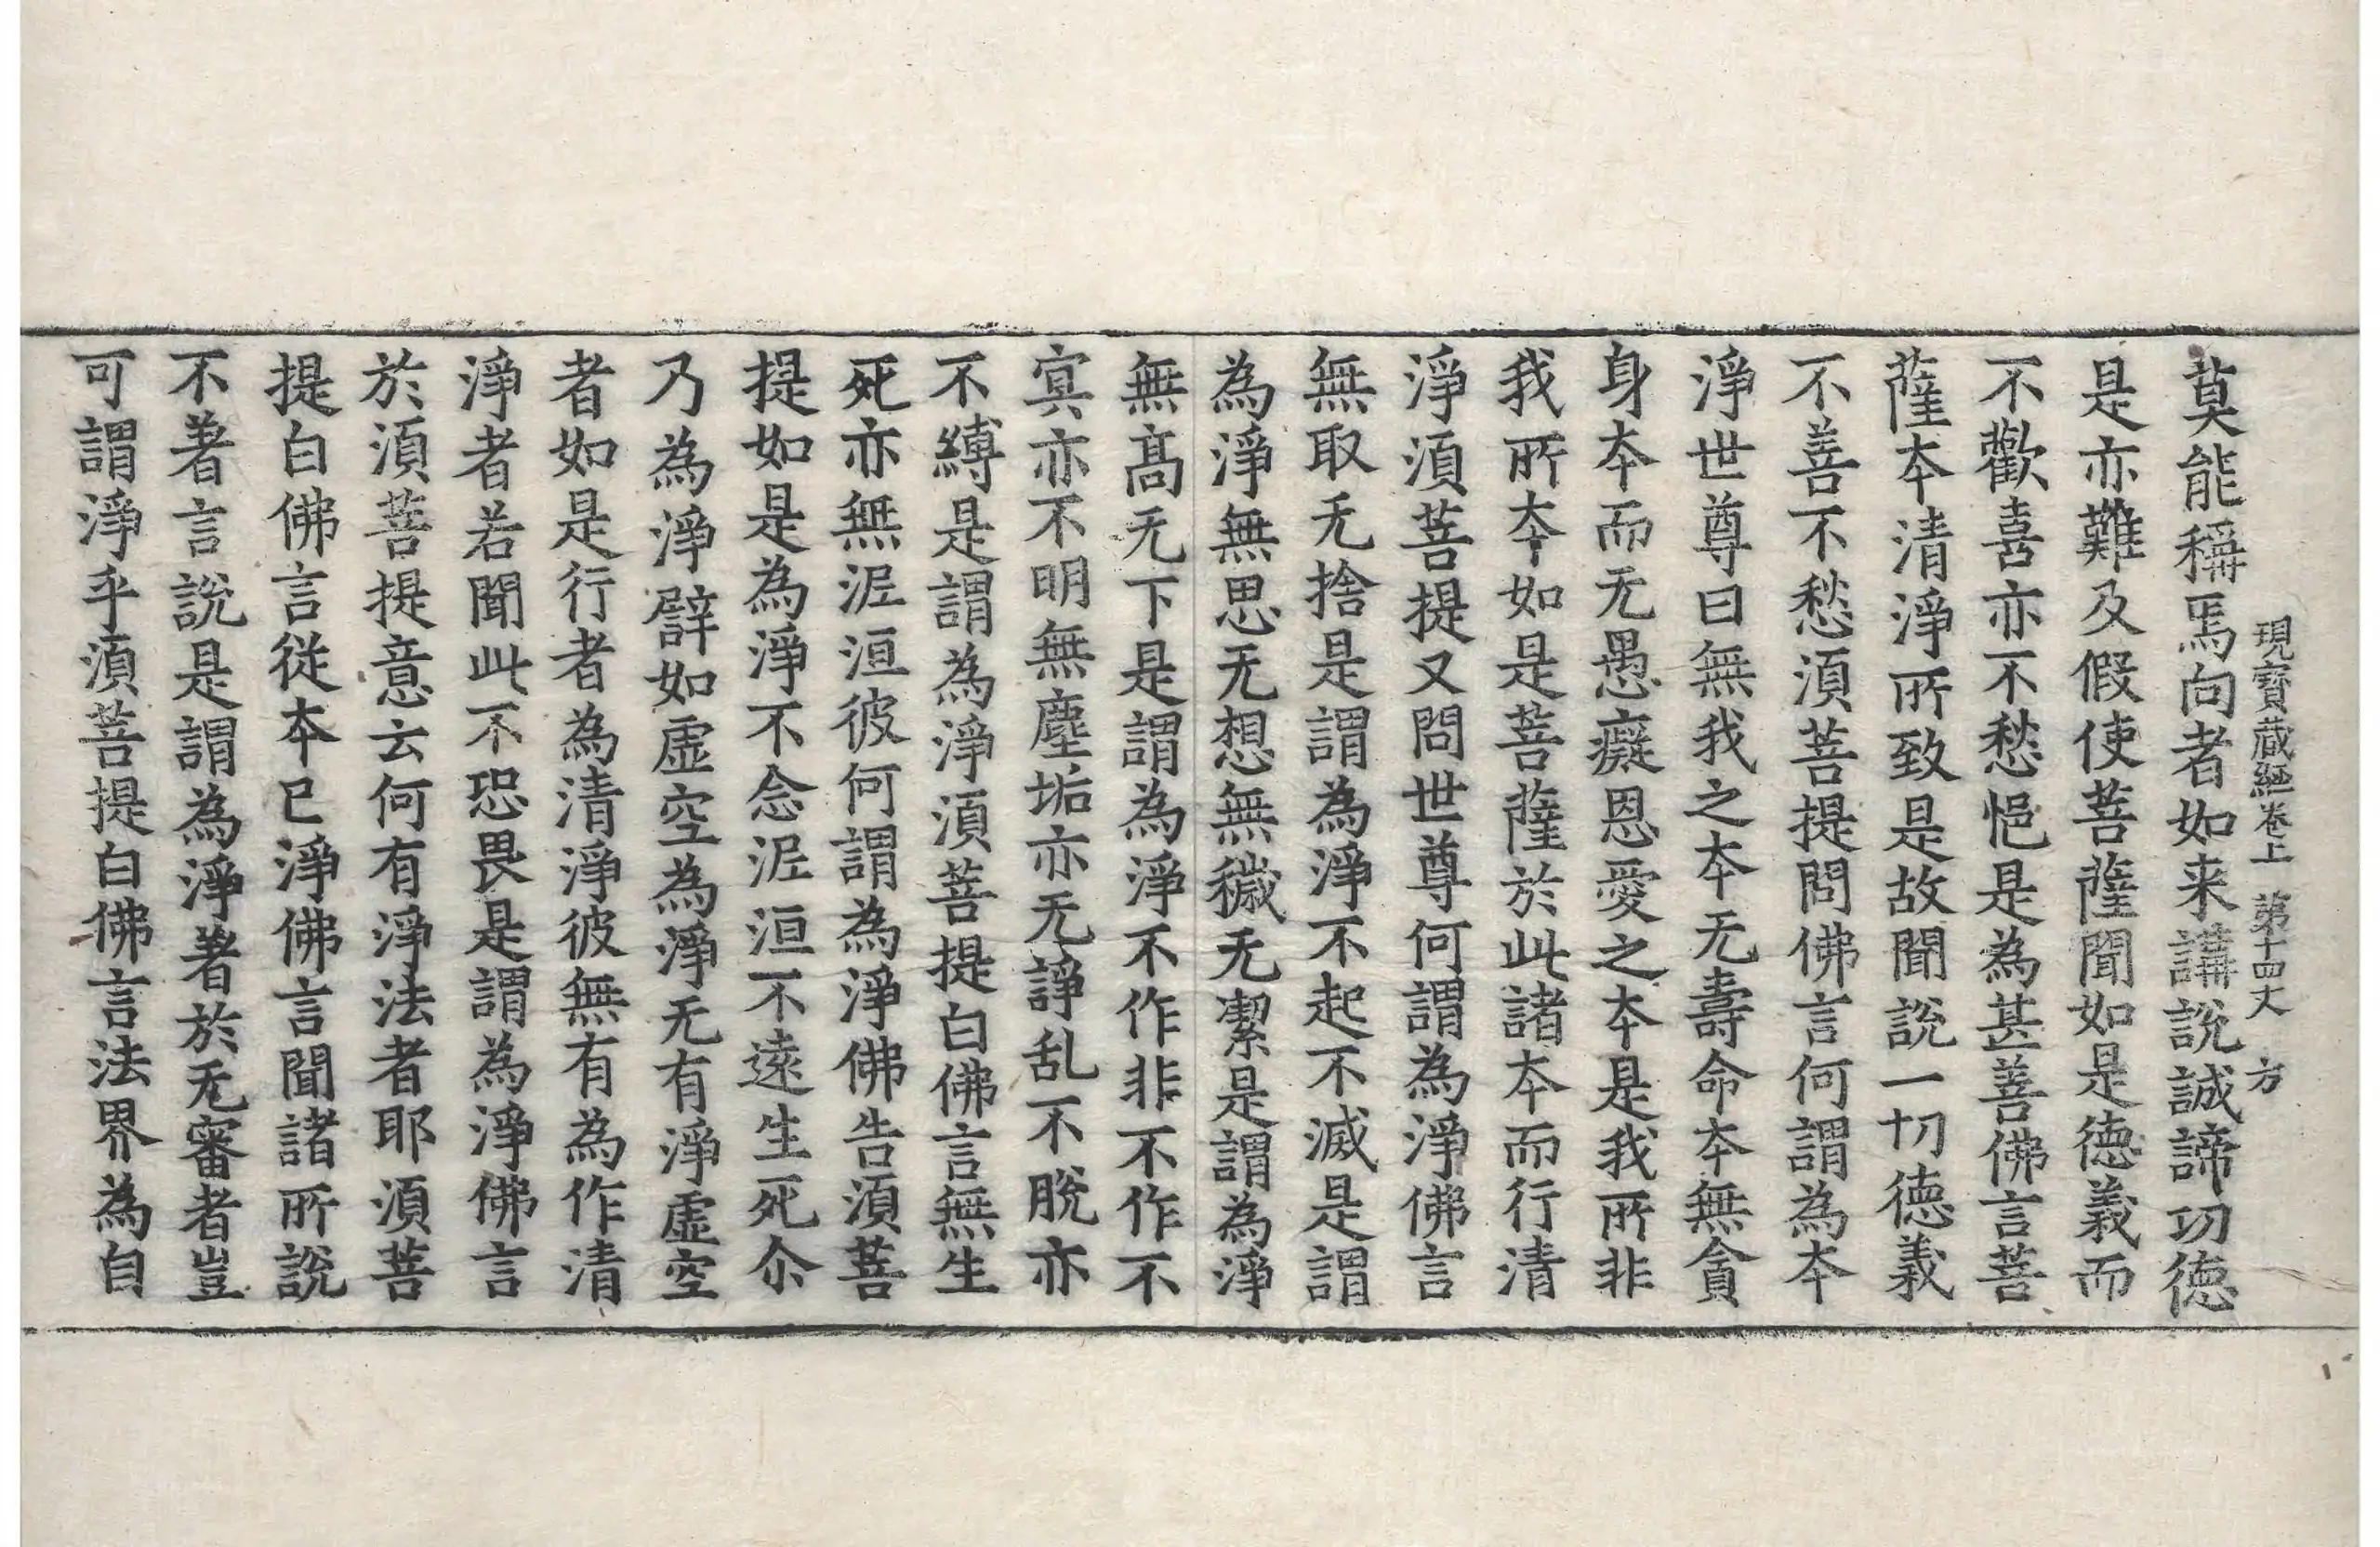 現寶蔵經卷上 第十四丈 方
莫能稱焉向者如来講說誠諦功徳
是亦難及假使菩薩聞如是徳義而
不歡喜亦不愁悒是為甚善佛言菩
薩夲清淨所致是故聞說一切徳義
不善不愁湏菩提問佛言何謂為夲
淨世尊曰無我之夲无壽命夲無貪
身夲而无愚癡恩愛之夲是我所非
我所夲如是菩薩於此諸夲而行清
淨湏菩提又問世尊何謂為淨佛言
無取无捨是謂為淨不起不滅是謂
為淨無思无想無穢无潔是謂為淨
無髙无下是謂為淨不作非不作不
㝠亦不明無塵垢亦无諍乱不脫亦
不縛是謂為淨湏菩提白佛言無生
死亦無泥洹彼何謂為淨佛告湏菩
提如是為淨不念泥洹不遠生死尒
乃為淨譬如虛空為淨无有淨虛空
者如是行者為清淨彼無有為作清
淨者若聞此不恐畏是謂為淨佛言
於湏菩提意云何有淨法者耶湏菩
提白佛言從夲已淨佛言聞諸所說
不著言說是謂為淨著於无審者豈
可謂淨乎湏菩提白佛言法界為自